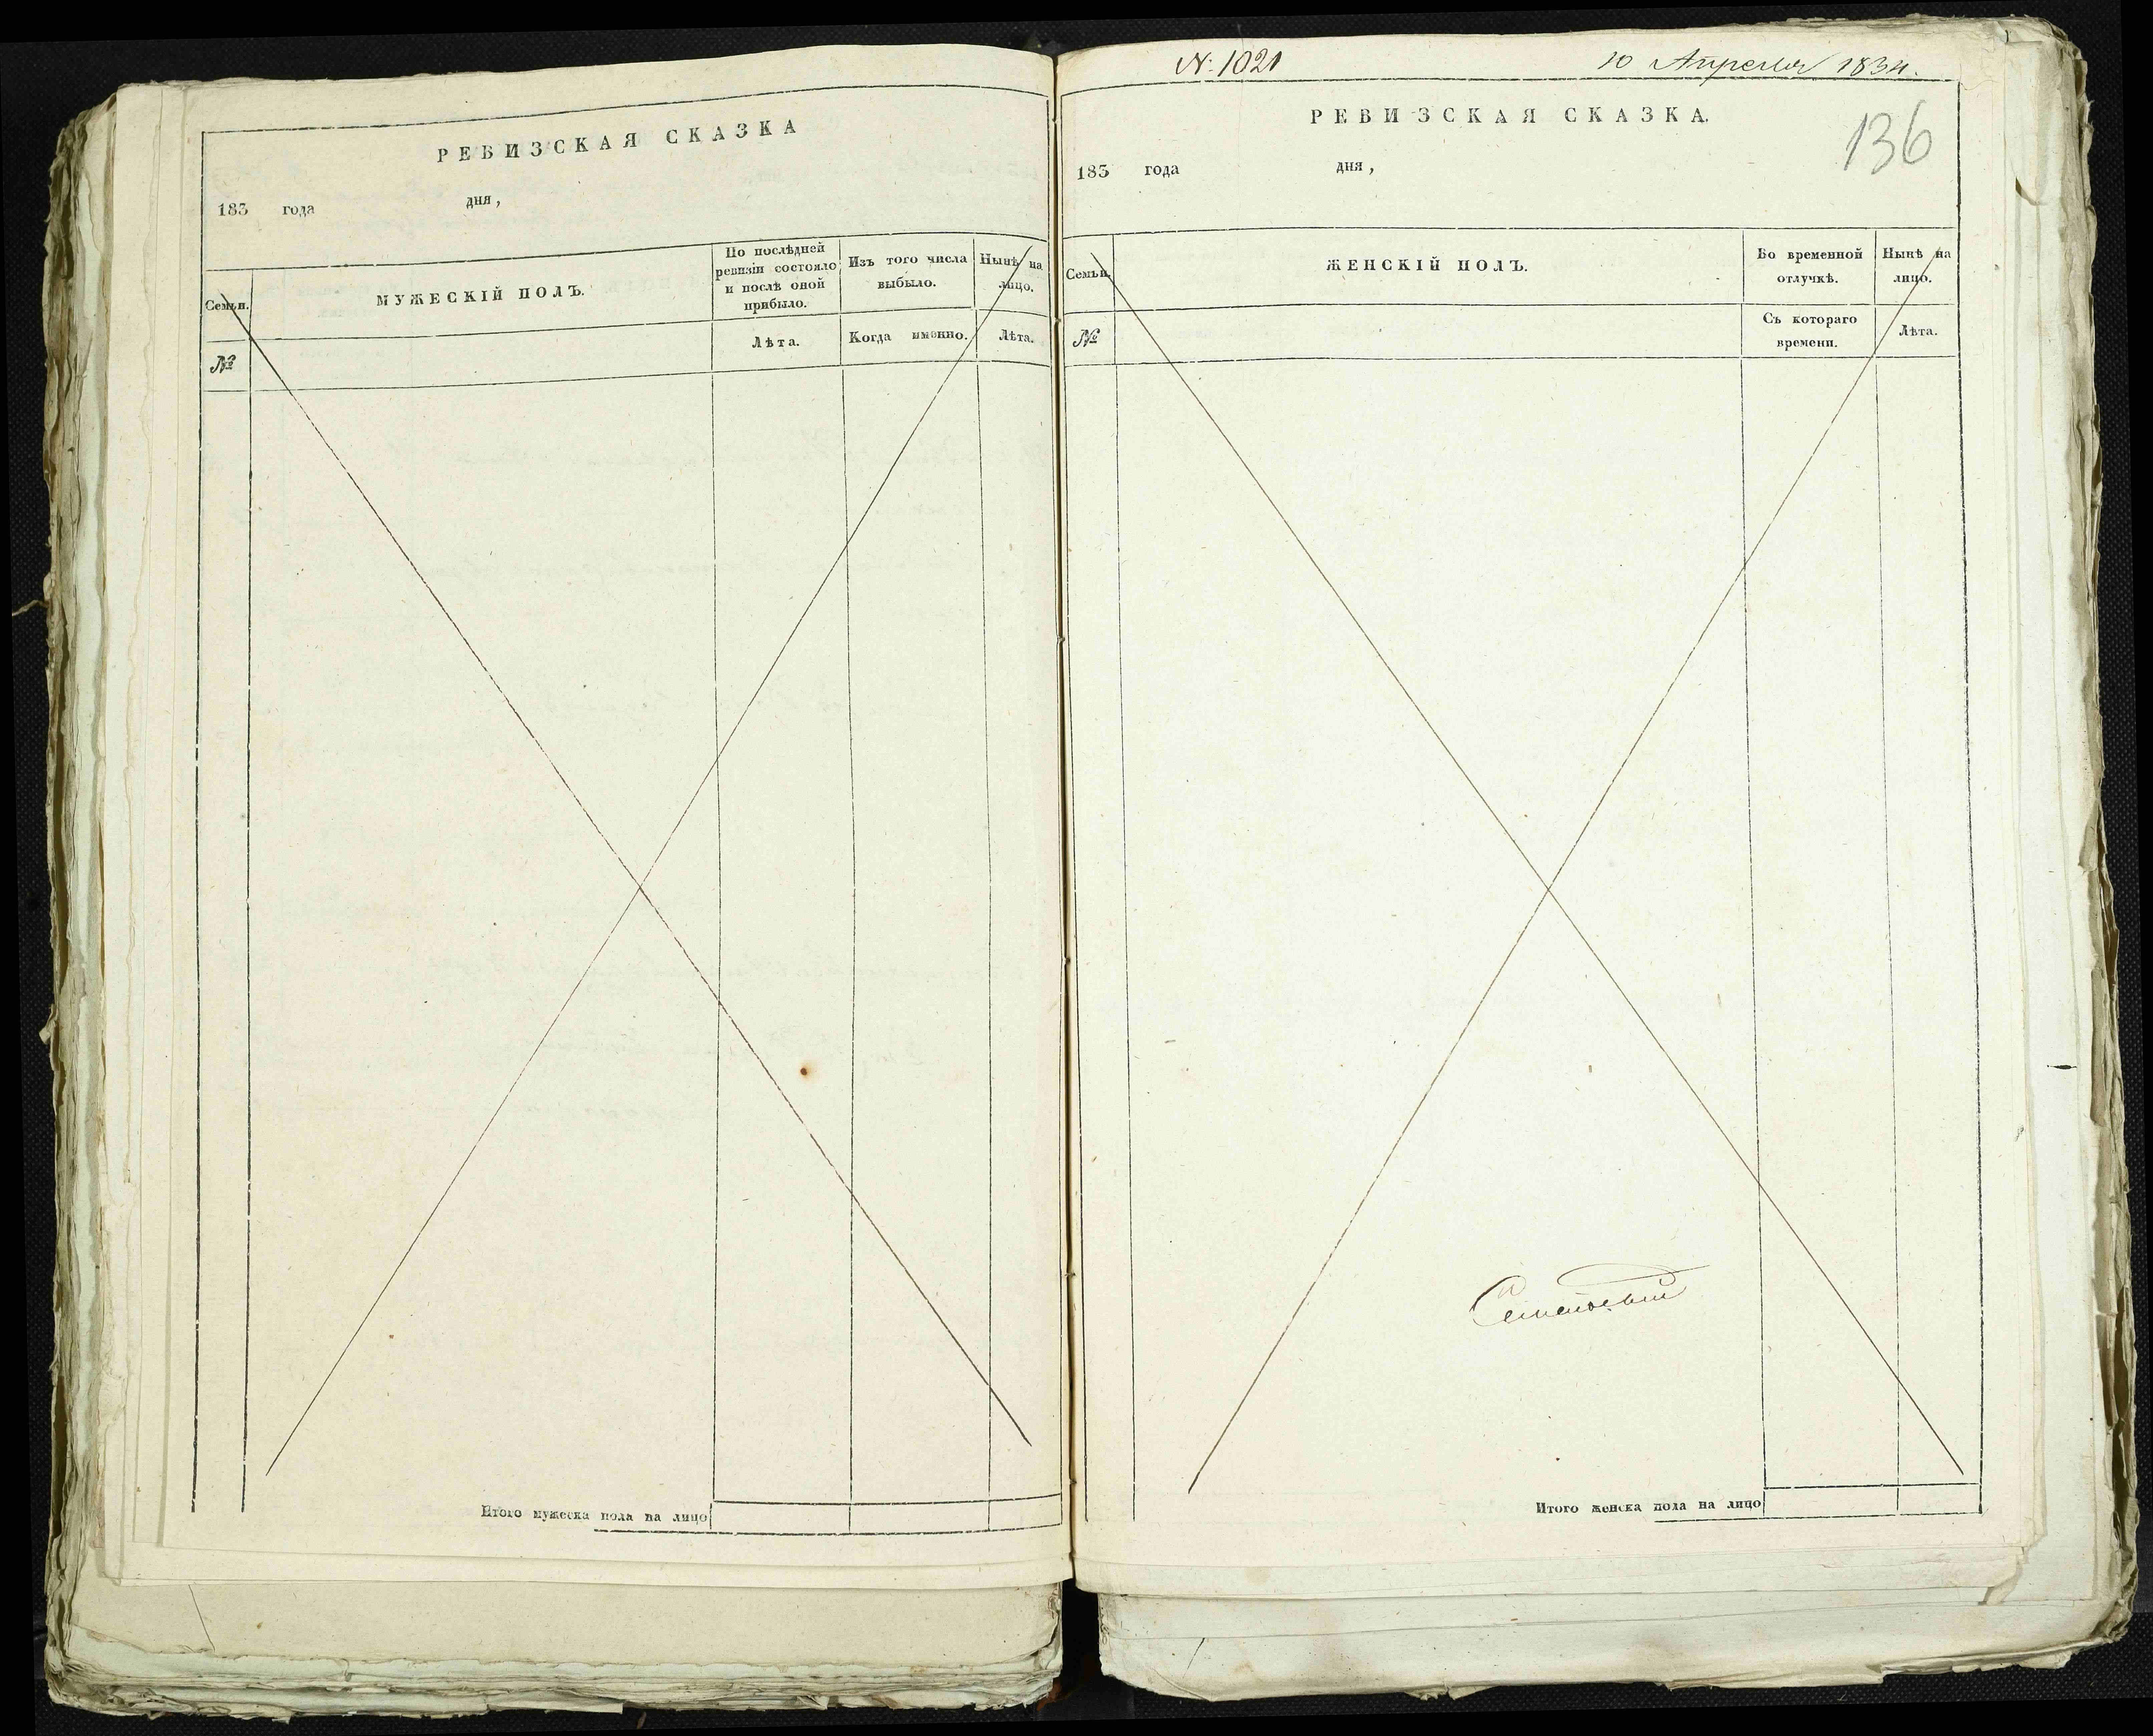 РЕВИЗСКАЯ СКАЗКА
183 года дня,
Семьи.
МУЖЕСКІЙ ПОЛЪ.
По послѣдней
ревизіи состояло
и послѣ оной
прибыло.
Изъ того числа
выбыло.
Нынѣ на
лицо.
№
Лѣта.
Когда именно.
Лѣта.
Итого мужеска пола на лицо
N: 1021
10 Апреля 1834.
РЕВИЗСКАЯ СКАЗКА.
136
183 года дня,
Семьи.
ЖЕНСКІЙ ПОЛЪ.
Во временной
отлучкѣ.
Нынѣ на
лицо.
№
Съ котораго
времени.
Лѣта.
Итого женска пола на лицо